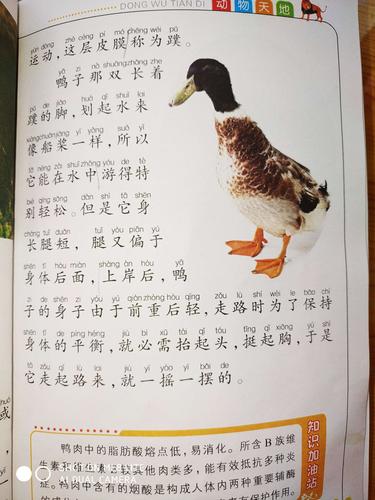 DONG WU TIAN DI
动物天地
yùn dòng zhè céng pí mó chēng wéi pǔ
运动，这层皮膜称为蹼。
yā zi nà shuāng zhǎng zhe
鸭子那双长着
pǔ de jiǎo huá qǐ shuǐ lai
蹼的脚，划起水来
xiàng chuán jiǎng yí yàng suǒ yǐ
像船桨一样，所以
tā néng zài shuǐ zhōng yóu de tè
它能在水中游得特
bié qīng sōng dàn shì tā shēn
别轻松。但是它身
cháng tuǐ duǎn tuǐ yòu piān yú
长腿短，腿又偏于
shēn tǐ hòu miàn shàng àn hòu yā
身体后面，上岸后，鸭
zi de shēn zi yóu yú qián zhòng hòu qīng zǒu lù shí wèi le bǎo chí
子的身子由于前重后轻，走路时为了保持
shēn tǐ de píng héng jiù bì xū tái qǐ tóu tǐng qǐ xiōng yú shì
身体的平衡，就必需抬起头，挺起胸，于是
tā zǒu qǐ lù lái jiù yì yáo yì bǎi de
它走起路来，就一摇一摆的。
知识加油站
鸭肉中的脂肪酸熔点低，易消化。所含B族维
生素和维生素E较其他肉类多，能有效抵抗多种炎
症。鸭肉中含有的烟酸是构成人体内两种重要辅酶
AI DUAL CAMERA